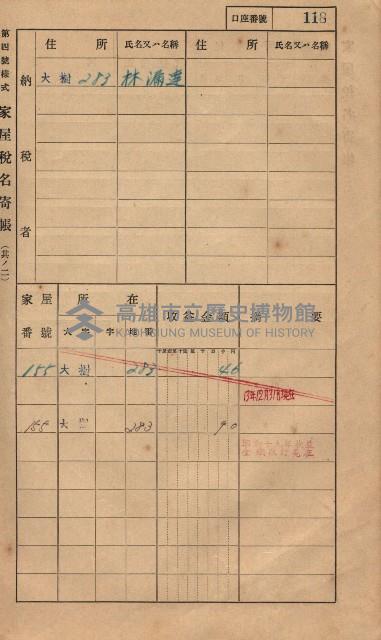 口座番號 118
第四號樣式 家屋稅名寄帳 (其ノ二)
納稅者
住所 氏名又ハ名稱 住所 氏名又ハ名稱
大樹 283 林滿
家屋番號 所在 收益金額 摘要
大字 字 地番
155 大樹 283 46
13年12月31日現在
155 大樹 283 90
高雄市立歷史博物館
KAOHSIUNG MUSEUM OF HISTORY